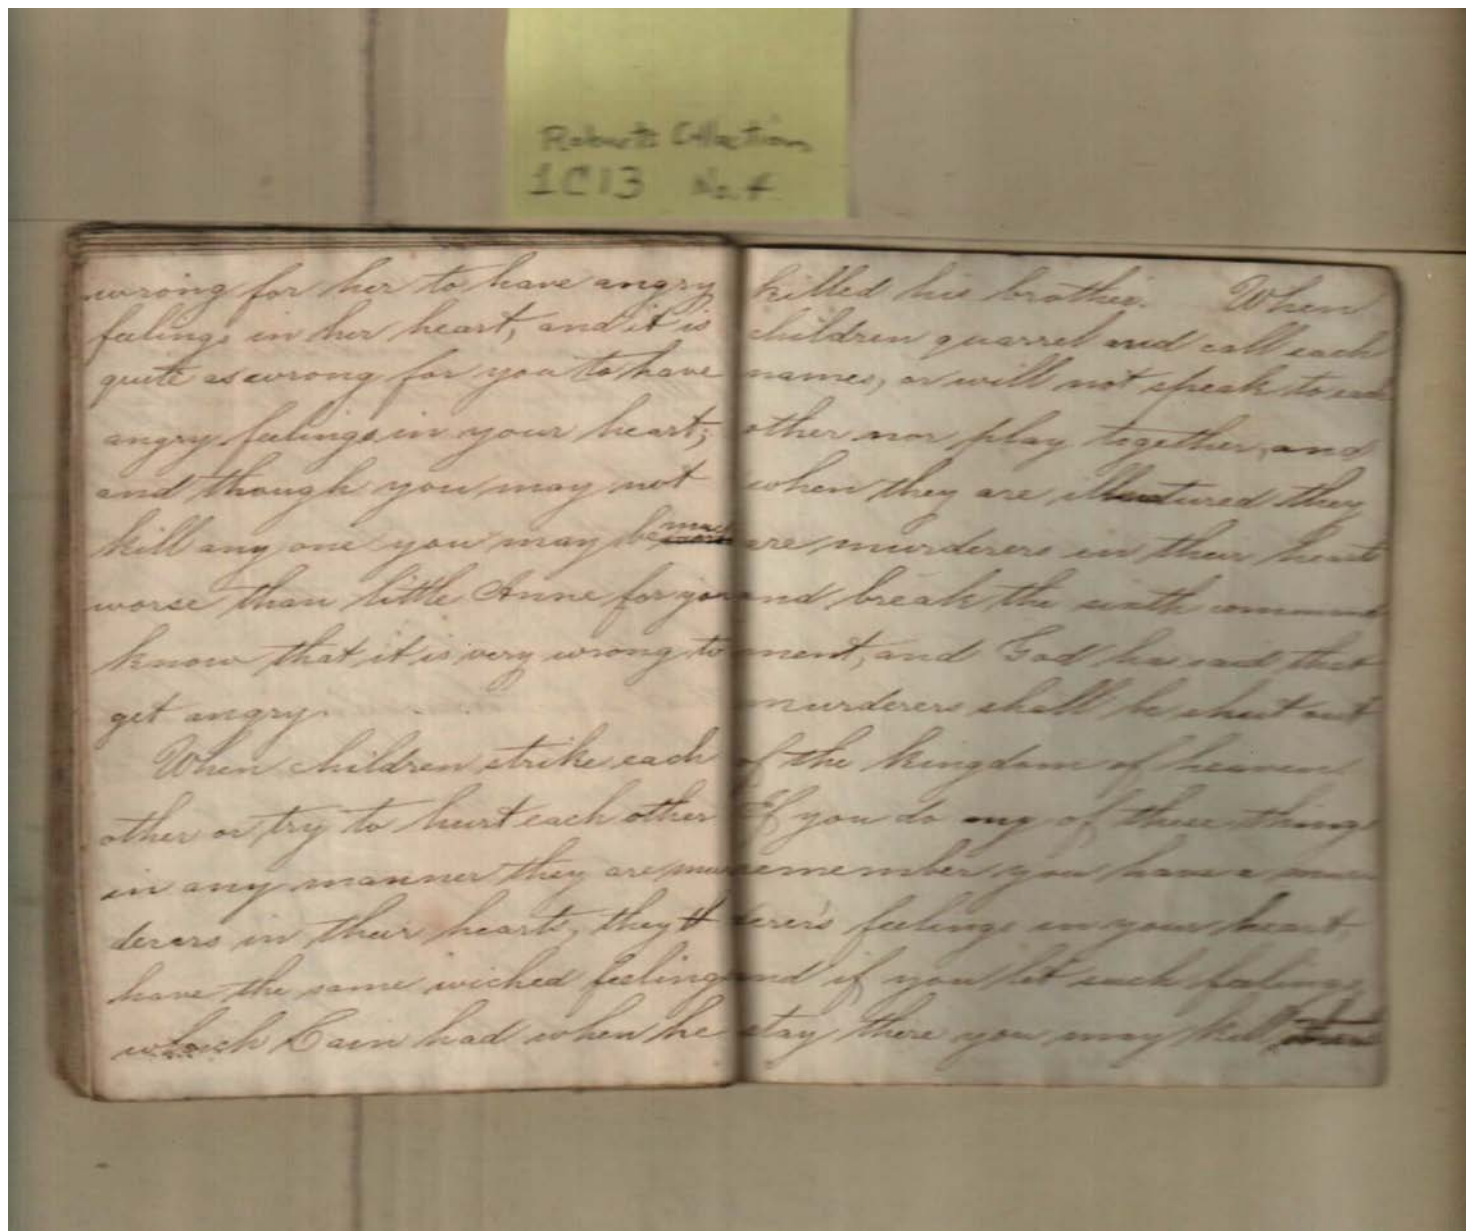 Roberts Collection
1C13 No. 4
wrong for her to have angry
feelings in her heart, and it is
quite as wrong for you to have
angry feelings in your heart;
and though you may not
kill any one you may be much
worse than little Anne for you
know that it is very wrong to
get angry.
When children strike each
other or try to hurt each other
in any manner they are mur
derers in their hearts, they
have the same wicked feelings
which Cain had when he
killed his brother. When
children quarrel and call each
names, or will not speak to each
other nor play together, and
when they are illnatured they
are murderers in their hearts
and break the sixth command
ment, and God has said that
murderers shall be shut out
of the kingdom of heaven.
If you do any of these things
remember you have a mur
derer's feelings in your heart,
and if you let such feelings
stay there you may kill